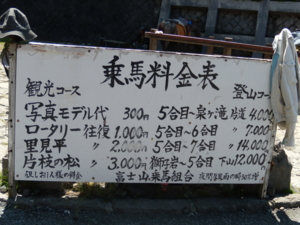 乗馬料金表
観光コース
登山コース
写真モデル代 300円 5合目〜泉ヶ滝 片道 4,000
ロータリー往復 1,000円 5合目〜6合目 〃 7,000
里見平 〃 2,000円 5合目〜7合目 〃 14,000
片枝の松 〃 3,000円 獅子岩〜5合目 下山 12,000
但しお1人様の料金 富士山乗馬組合